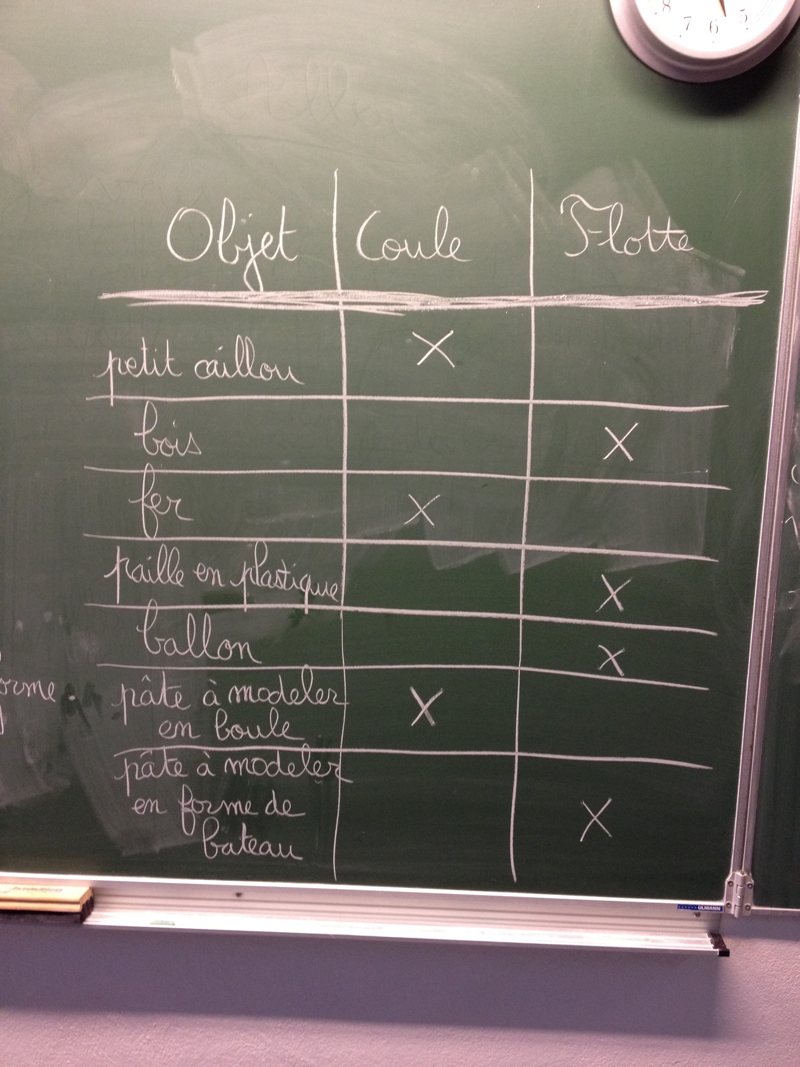 8 7 6 5
Objet Coule Flotte
petit caillou X
bois X
fer X
paille en plastique X
ballon X
pâte à modeler X
en boule
pâte à modeler
en forme de X
bateau
orme
ULMANN